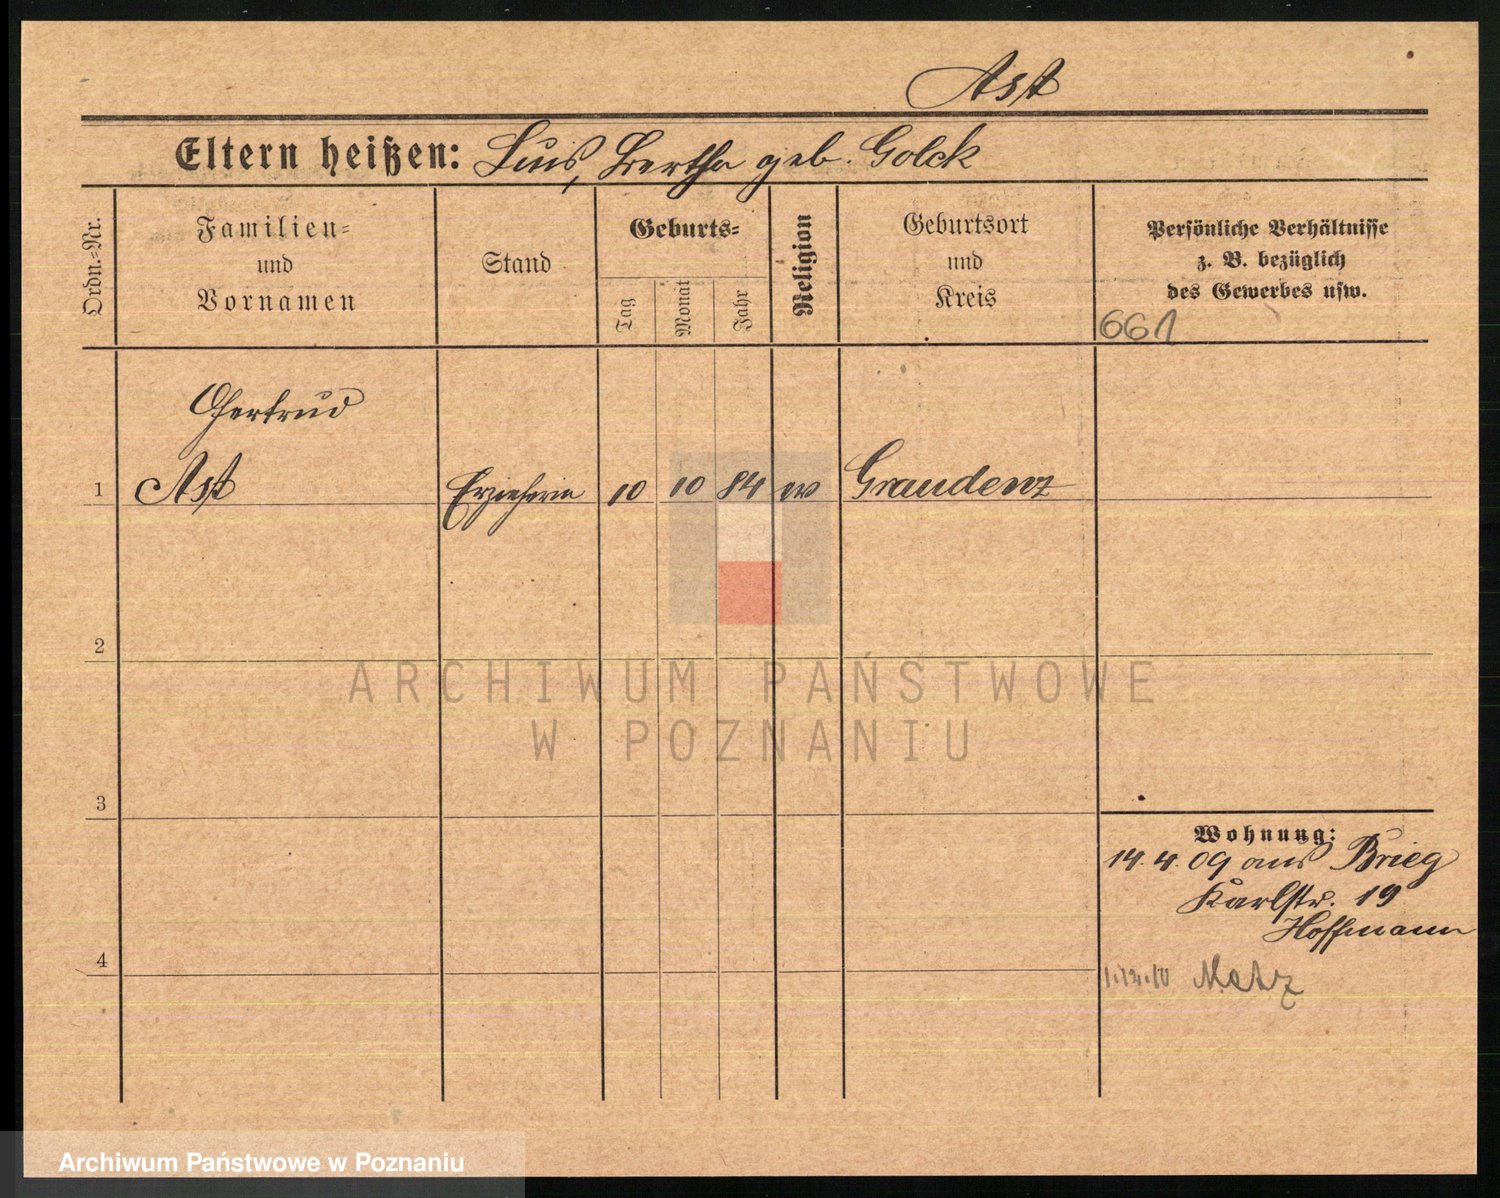 Ast
Eltern heißen: Luis, Bertha geb. Golck
Ordn.-Nr.
Familien-
und
Vornamen
Stand
Geburts-
Tag
Monat
Jahr
Religion
Geburtsort
und
Kreis
Persönliche Verhältnisse
z. B. bezüglich
des Gewerbes usw.
661
Gertrud
1 Ast Erzieherin 10 10 84 ev Graudenz
2
ARCHIWUM PAŃSTWOWE
W POZNANIU
3
Wohnung:
14. 4. 09 aus Brieg
Karlstr. 19
Hoffmann
4
Metz
Archiwum Państwowe w Poznaniu